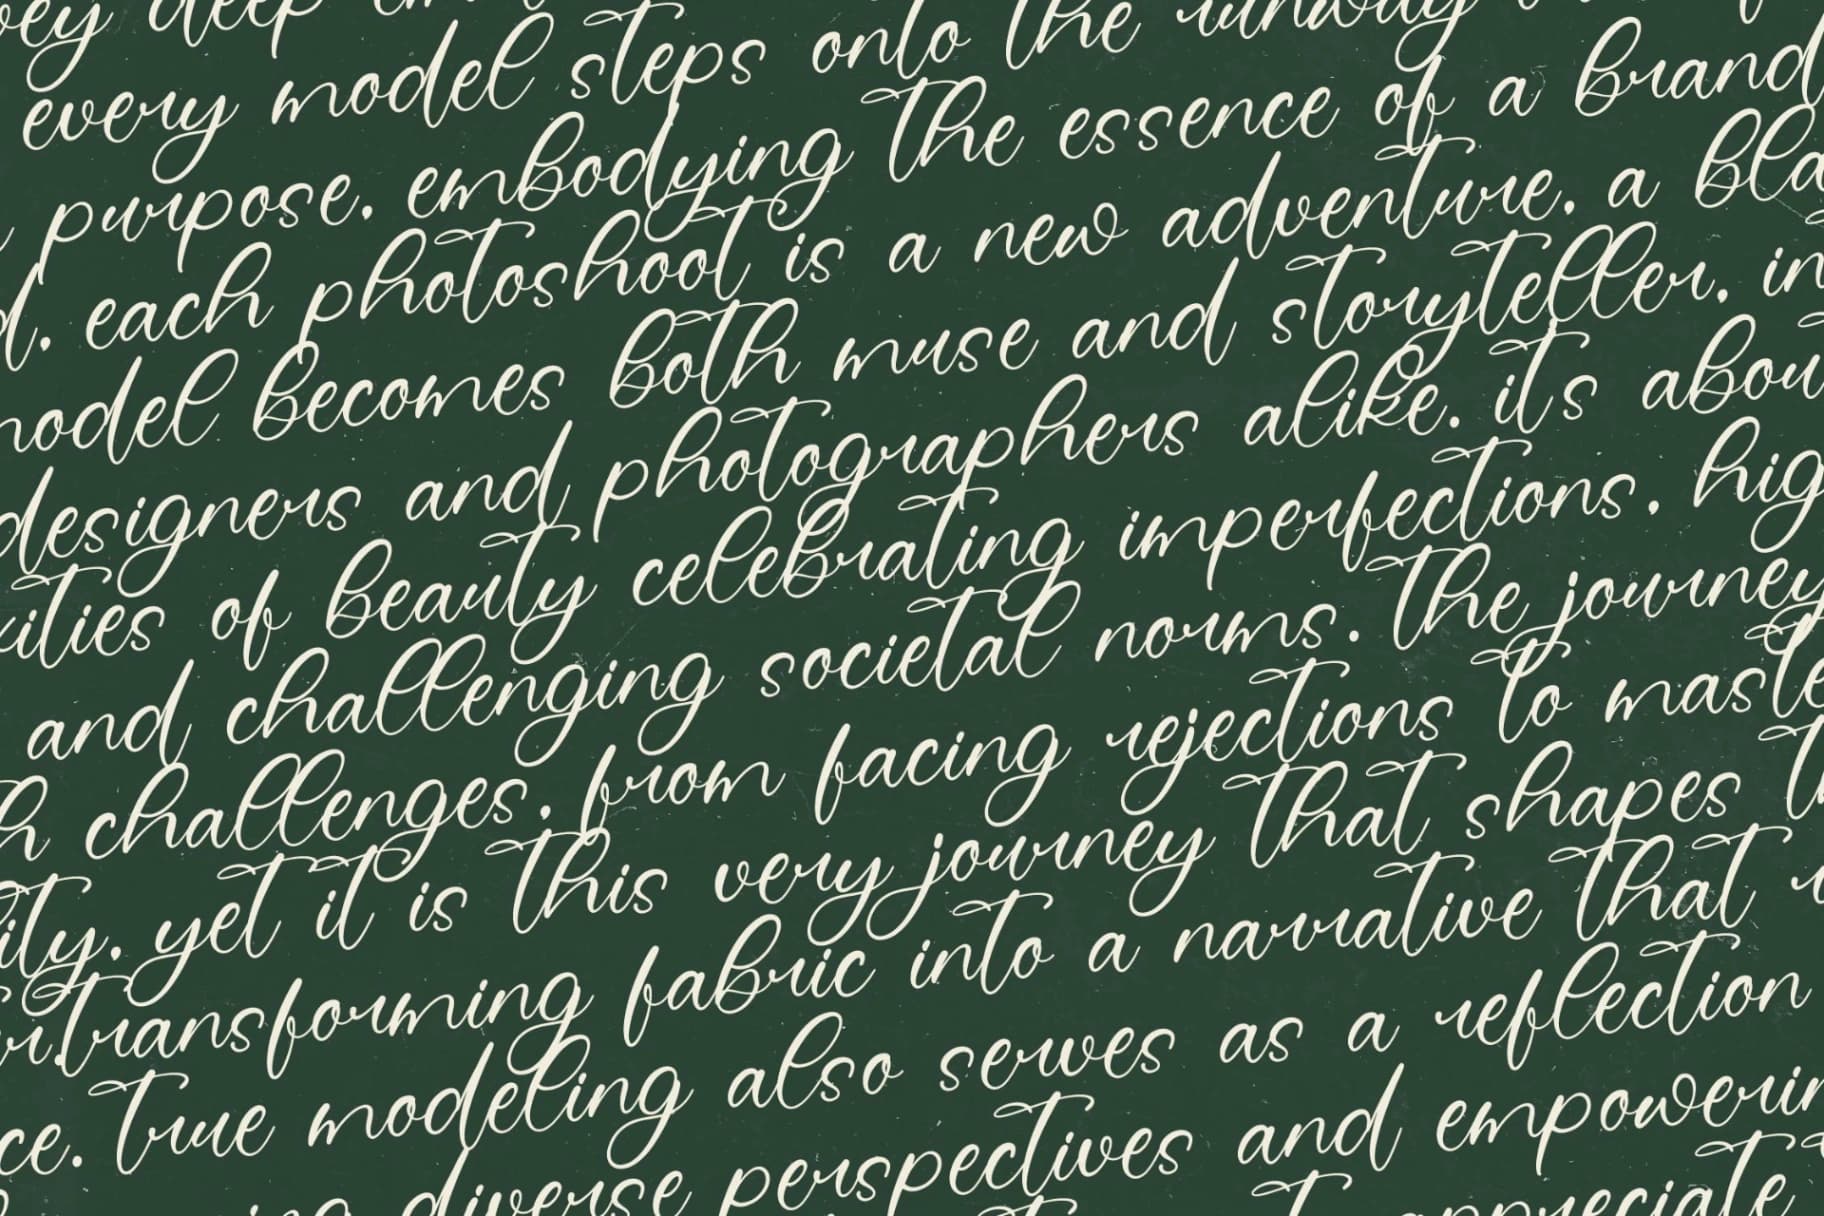 deep
every model steps onto the runway
purpose. embodying the essence of a brand
each photoshoot is a new adventure. a
model becomes both muse and storyteller. in
designers and photographers alike. it's abou
of beauty celebrating imperfections. hig
and challenging societal norms. the journey
challenges. from facing rejections to maste
ity. yet it is this very journey that shapes
transforming fabric into a narrative that
ce. true modeling also serves as a reflection
diverse perspectives and empowerin
appreciate